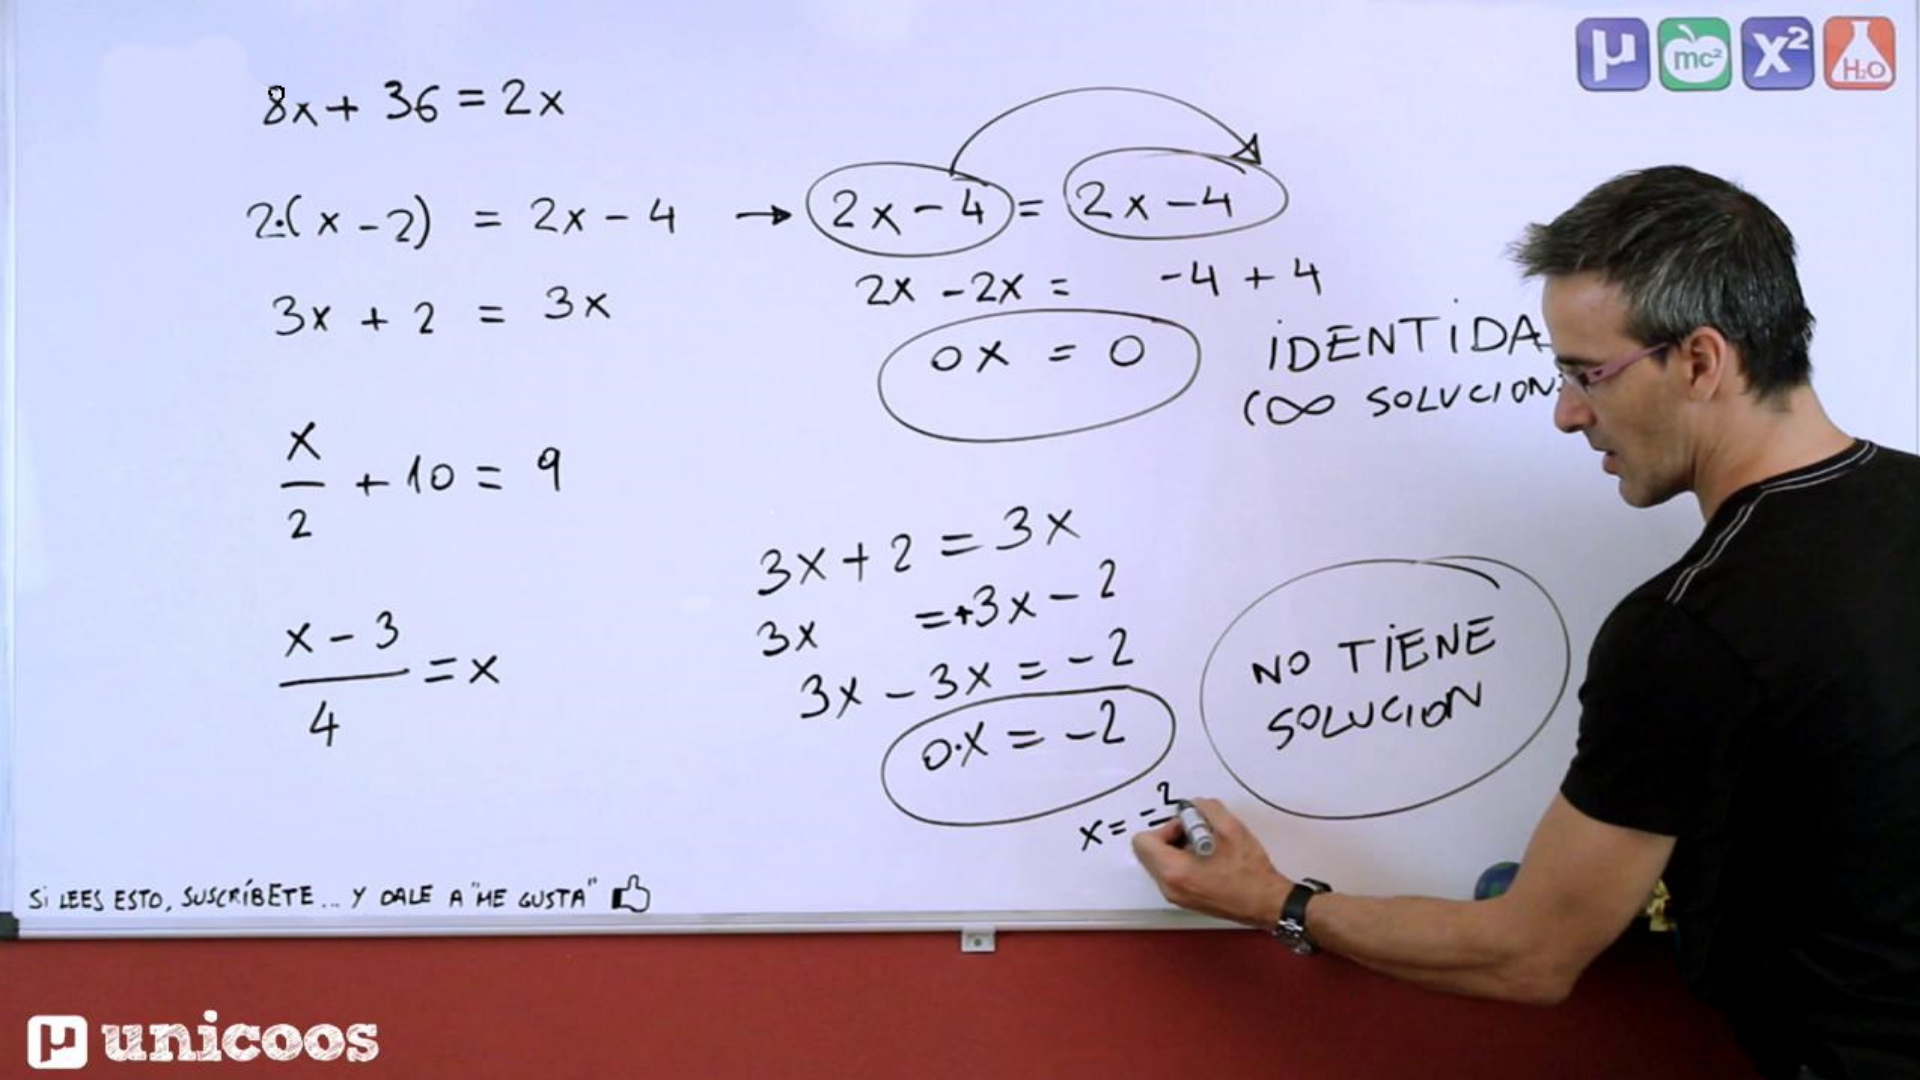 μ mc² x² H₂O
8x + 36 = 2x
2·(x - 2) = 2x - 4 → 2x - 4 = 2x - 4
2x - 2x = -4 + 4
3x + 2 = 3x
0x = 0
IDENTIDA
(∞ SOLUCION
x/2 + 10 = 9
3x + 2 = 3x
3x = +3x - 2
3x - 3x = -2
0·x = -2
x = -2
NO TIENE
SOLUCION
x - 3/4 = x
Si LEES ESTO, SUSCRÍBETE... Y DALE A "ME GUSTA"
μ unicoos